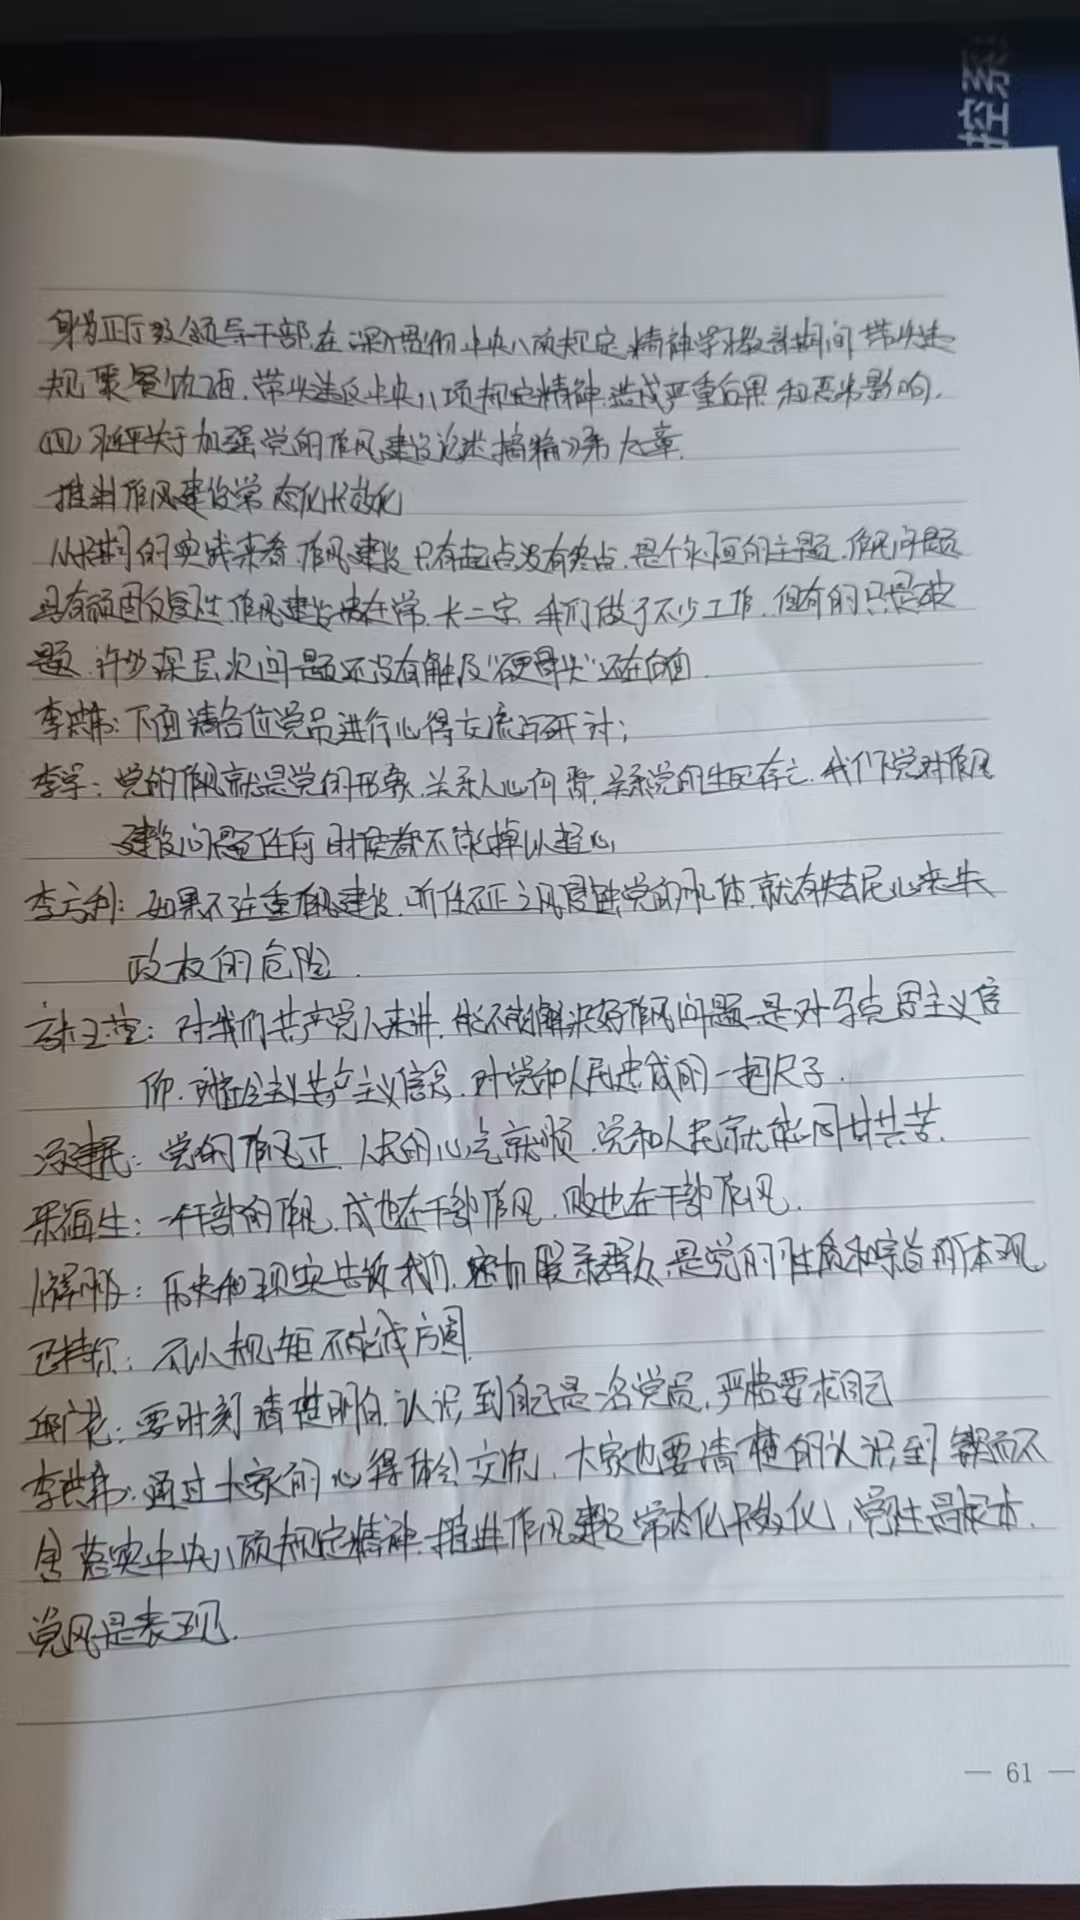 控系
身为正厅级领导干部,在深入贯彻中央八项规定精神学习教育期间带头违
规聚餐饮酒,带头违反中央八项规定精神,造成严重后果和恶劣影响.
(四)习近平关于加强党的作风建设论述摘编》第九章.
推进作风建设常态化长效化
从长期的实践来看,作风建设只有起点没有终点,是个永恒的主题,作风问题
具有顽固反复性,作风建设贵在常、长二字,我们做了不少工作,但有的只是破
题,许多深层次问题还没有触及"硬骨头"还在后面.
李洪韦:下面请各位党员进行心得交流与研讨;
李学:党的作风就是党的形象,关系人心向背,关系党的生死存亡.我们党对作风
建设问题任何时候都不能掉以轻心,
李方利:如果不注重作风建设,听任不正之风侵蚀党的肌体,就有失去民心丧失
政权的危险.
对我们共产党人来讲,能不能解决好作风问题,是对马克思主义信
仰、对社会主义共产主义信念、对党和人民忠诚的一把尺子.
建民:党的作风正,人民的心气就顺,党和人民就能同甘共苦.
梁福生:一个干部的作风,成也在干部作风,败也在干部作风.
历史和现实告诉我们,密切联系群众,是党的性质和宗旨的体现
巴特尔:不以规矩不能成方圆.
要时刻清楚明白,认识到自己是一名党员,严格要求自己
李洪韦:通过大家的心得体会交流,大家也要清楚的认识到锲而不
舍落实中央八项规定精神,推进作风建设常态化长效化,党性是根本.
党风是表现.
— 61 —